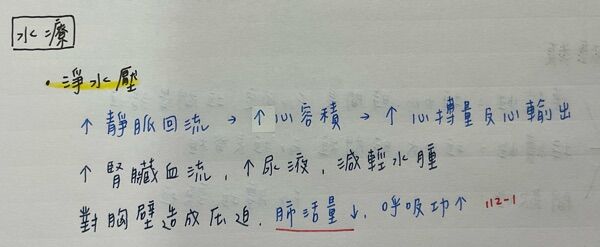 水療
・淨水壓
↑ 靜脈回流 → ↑ 心容積 → ↑ 心搏量及心輸出
↑ 腎臟血流, ↑ 尿液, 減輕水腫
對胸壁造成压迫, 肺活量↓, 呼吸功↑ 112-1